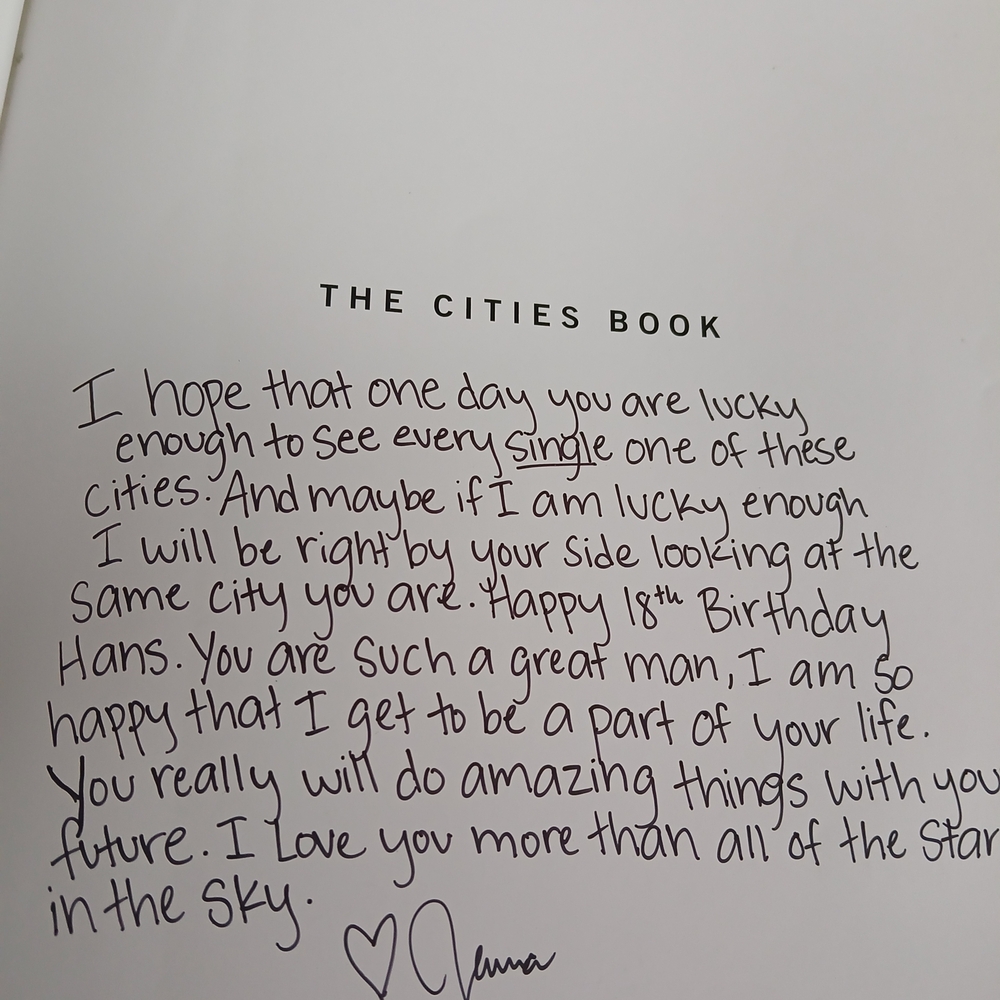 THE CITIES BOOK
I hope that one day you are lucky
enough to see every single one of these
cities. And maybe if I am lucky enough
I will be right by your side looking at the
same city you are. Happy 18th Birthday
Hans. You are such a great man, I am so
happy that I get to be a part of your life.
You really will do amazing things with you
future. I Love you more than all of the Star
in the sky.
♡ Jenna